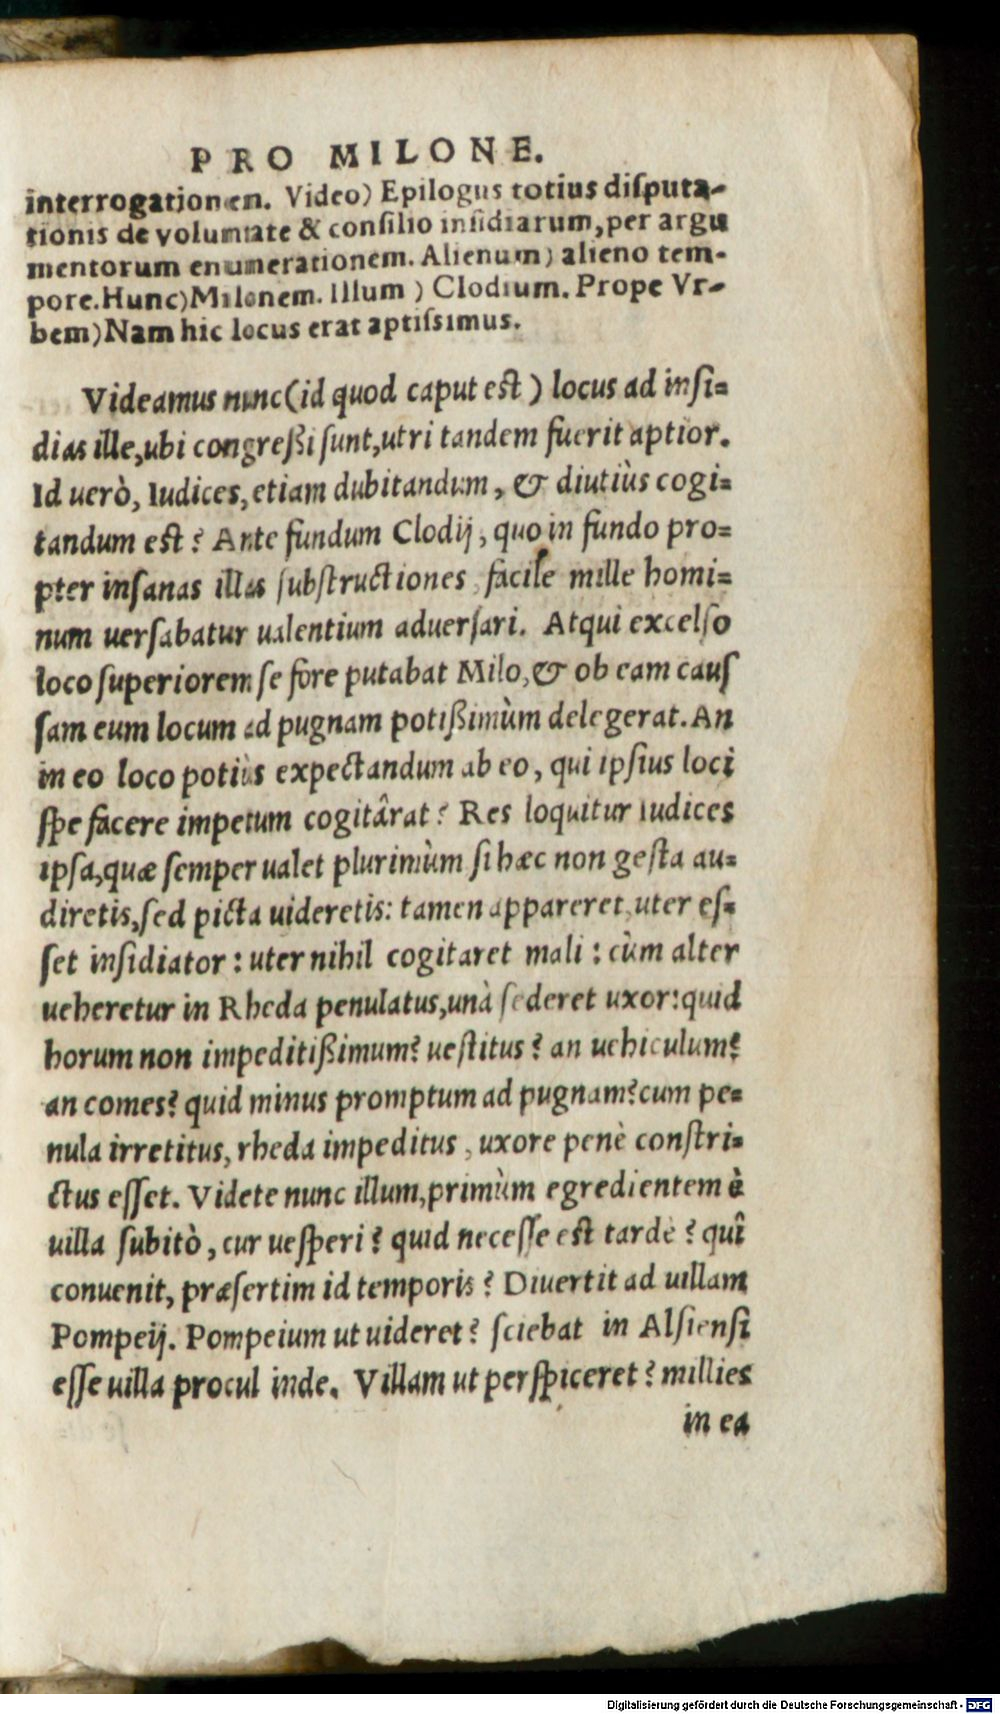 PRO MILONE.
interrogationen. Video) Epilogus totius disputa-
tionis de voluntate & consilio insidiarum, per argu
mentorum enumerationem. Alienum) alieno tem-
pore. Hunc) Milonem. Illum) Clodium. Prope Vr-
bem) Nam hic locus erat aptissimus.
Videamus nunc (id quod caput est) locus ad insi=
dias ille, ubi congreßi sunt, utri tandem fuerit aptior.
Id uerò, Iudices, etiam dubitandum, & diutiùs cogi=
tandum est? Ante fundum Clodij, quo in fundo pro=
pter insanas illas substructiones facile mille homi=
num uersabatur ualentium aduersari. Atqui excelso
loco superiorem se fore putabat Milo, & ob eam caus
sam eum locum ad pugnam potißimùm delegerat. An
in eo loco potiùs expectandum ab eo, qui ipsius loci
spe facere impetum cogitârat? Res loquitur iudices
ipsa, quæ semper ualet plurimùm si hæc non gesta au=
diretis, sed picta uideretis: tamen appareret, uter es=
set insidiator: uter nihil cogitaret mali: cùm alter
ueheretur in Rheda penulatus, unà sederet uxor: quid
horum non impeditißimum? uestitus? an uehiculum?
an comes? quid minus promptum ad pugnam? cum pe=
nula irretitus, rheda impeditus, uxore penè constri=
ctus esset. Videte nunc illum, primùm egredientem è
uilla subitò, cur uesperi? quid necesse est tardè? quî
conuenit, præsertim id temporis? Diuertit ad uillam
Pompeij. Pompeium ut uideret? sciebat in Alsiensi
esse uilla procul inde. Villam ut perspiceret? millies
in ea
Digitalisierung gefördert durch die Deutsche Forschungsgemeinschaft - DFG